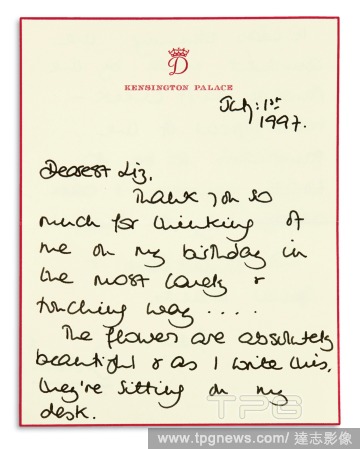 D
KENSINGTON PALACE
July: 1st
1997.
Dearest Liz,
Thank you so
much for thinking of
me on my birthday in
the most lovely &
touching way....
The flowers are absolutely
beautiful & as I write this,
they're sitting on my
desk.
TPG
www.tpgnews.com/ 達志影像